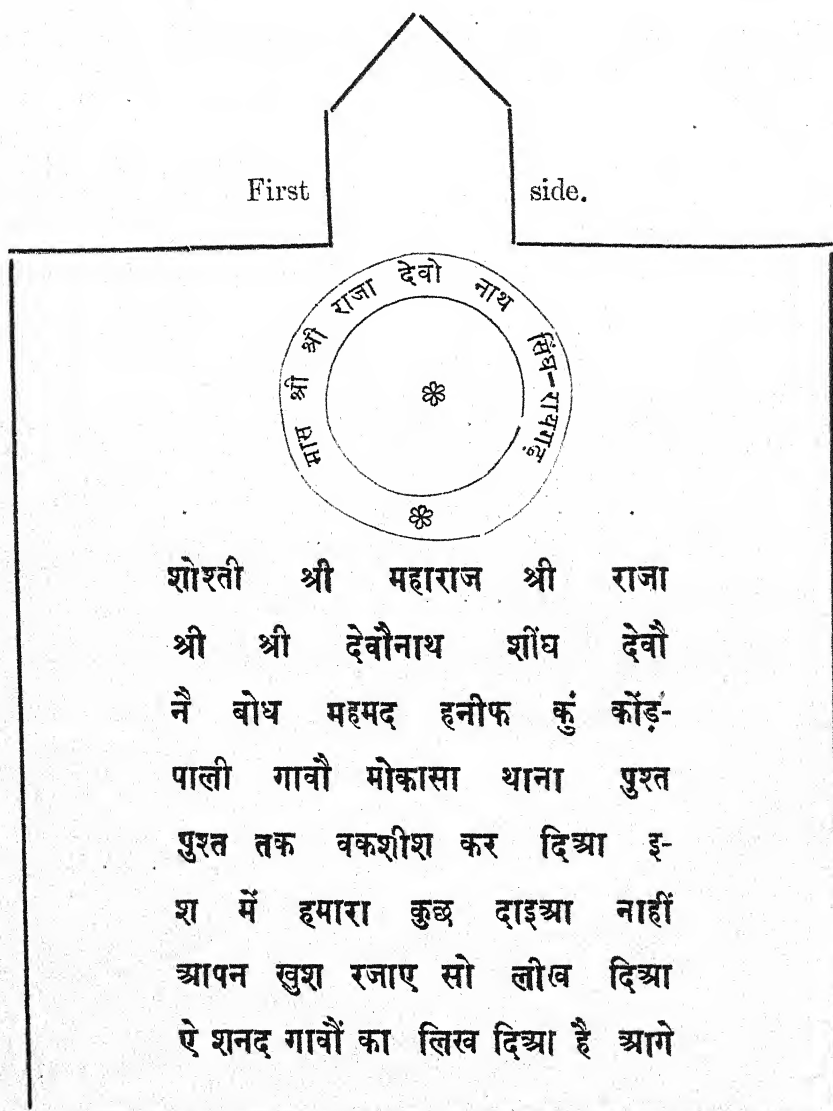 First side.
मास श्री श्री राजा देवो नाथ सिंघ-रायगढ़
शोश्ती श्री महाराज श्री राजा
श्री श्री देवौनाथ शींघ देवौ
नै बोध महमद हनीफ कुं कोंड़-
पाली गावौ मोकासा थाना पुश्त
पुश्त तक वकशीश कर दिआ इ-
श में हमारा कुछ दाइआ नाहीं
आपन खुश रजाए सो लीख दिआ
ऐ शनद गावौं का लिख दिआ है आगे